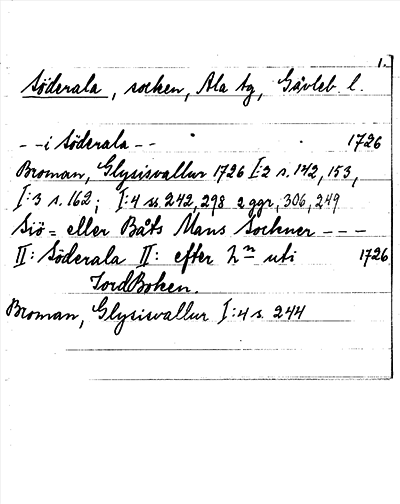 1.
Söderala, socken, Ala tg, Gävleb. l.
- - i Söderala - - 1726
Broman, Glysisvallur 1726 I:2 s. 142, 153,
I:3 s. 162; I:4 ss. 242, 298 2 ggr, 306, 249
Siö= eller Båts Mans Sochner - - -
II: Söderala II: efter h:n uti 1726
JordBoken.
Broman, Glysisvallur I:4 s. 244